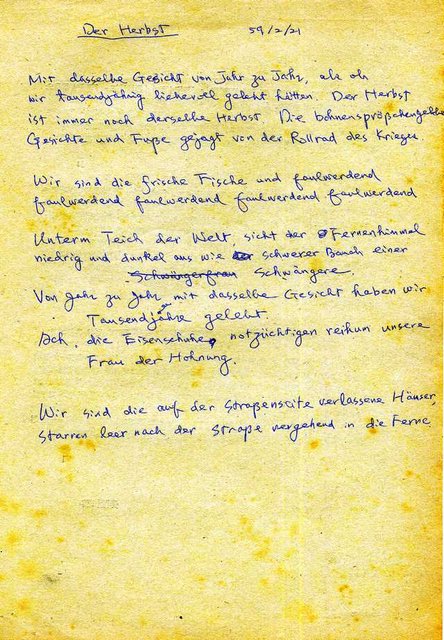 Der Herbst 59/2/21
Mit dasselbe Gesicht von Jahr zu Jahr, als ob
wir tausendjährig liebevoll gelebt hätten. Der Herbst
ist immer noch derselbe Herbst. Die bohnensprößchengelbe
Gesichte und Fuße gejagt von der Rollrad des Krieges
Wir sind die frische Fische und faulwerdend
faulwerdend faulwerdend faulwerdend faulwerdend
Unterm Teich der Welt, sieht der Fernenhimmel
niedrig und dunkel aus wie schwerer Bauch einer
Schwangerfrau Schwängere.
Von Jahr zu Jahr, mit dasselbe Gesicht haben wir
Tausendjähre gelebt.
Ach, die Eisenschuhe, notzüchtigen reihum unsere
Frau der Hoffnung.
Wir sind die auf der Straßenseite verlassene Häuser,
Starren leer nach der Straße vergehend in die Ferne